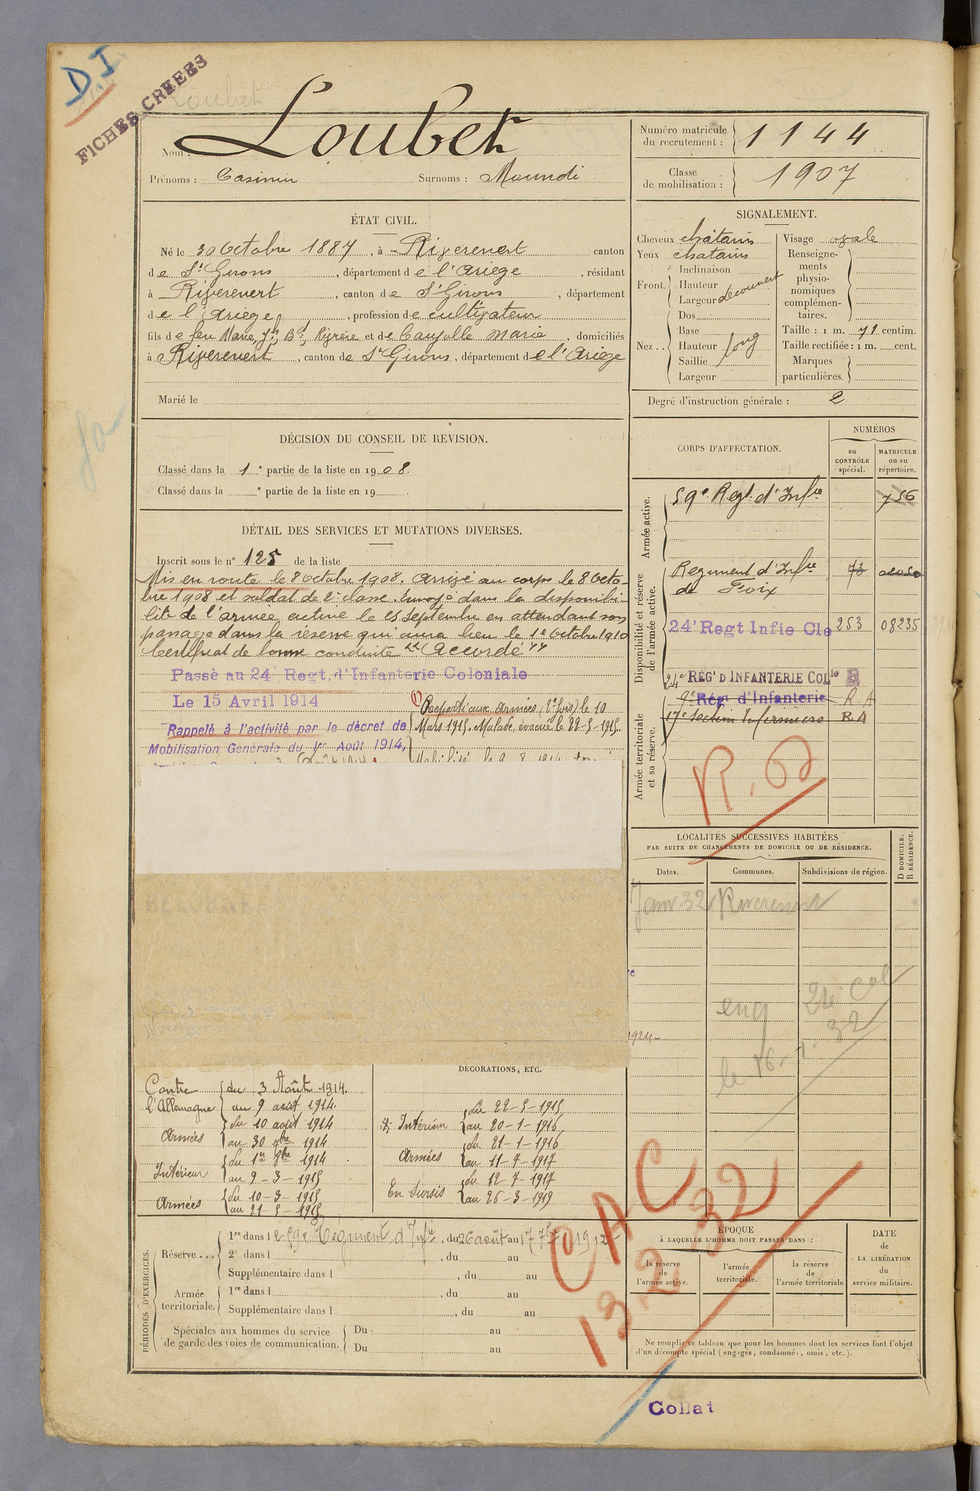 D.I
FICHES CREEES
Loubet
Nom : Loubet
Prénoms : Casimir Surnoms : Maundi
Numéro matricule du recrutement : 1144
Classe de mobilisation : 1907
ÉTAT CIVIL.
Né le 30 Octobre 1887, à Riverenert canton
de St Girons, département de l'Ariège, résidant
à Riverenert, canton de St Girons, département
de l'Ariège, profession de cultivateur
fils de feu Marie, Jn Bd, Rivière et de Caujolle Marie, domiciliés
à Riverenert, canton de St Girons, département de l'Ariège
Marié le
SIGNALEMENT.
Cheveux chatains
Yeux chatains
Front. Inclinaison
Hauteur
Largeur découvert
Nez .. Dos
Base
Hauteur long
Saillie
Largeur
Visage ovale
Renseignements physionomiques complémentaires.
Taille : 1 m. 71 centim.
Taille rectifiée : 1 m. cent.
Marques particulières.
Degré d'instruction générale : 2
DÉCISION DU CONSEIL DE REVISION.
Classé dans la 1e partie de la liste en 1908.
Classé dans la e partie de la liste en 19 .
DÉTAIL DES SERVICES ET MUTATIONS DIVERSES.
Inscrit sous le n° 125 de la liste
Mis en route le 8 Octobre 1908. Arrivé au corps le 8 Octo-
bre 1908 et soldat de 2e classe. Envoyé dans la disponibi-
lité de l'armée active le 25 septembre en attendant son
passage dans la réserve qui aura lieu le 1er Octobre 1910
Certificat de bonne conduite "Accordé"
Passé au 24e Regt. d'Infanterie Coloniale
Le 15 Avril 1914
Rappelé à l'activité par le décret de
Mobilisation Générale du 1er Août 1914,
(1) Reparti aux armées (2e fois) le 10
Mars 1915. Malade, évacué le 22-5-1915.
CORPS D'AFFECTATION.
NUMÉROS
au CONTRÔLE spécial.
MATRICULE ou au répertoire.
Armée active.
59e Regt. d'Infie 756
Disponibilité et réserve de l'armée active.
Regiment d'Infie 73
de Foix
24e Regt Infie Cle 253 08235
24e REGt D'INFANTERIE COLle
Armée territoriale et sa réserve.
9e Régt d'Infanterie R.A
17e Section Infirmiers R.A
R. 02
LOCALITÉS SUCCESSIVES HABITÉES
PAR SUITE DE CHANGEMENTS DE DOMICILE OU DE RÉSIDENCE.
Dates. Communes. Subdivisions de région. D DOMICILE. R RÉSIDENCE.
Janv 32 Riverenert
eng 24e Col
le 16-1-32
DÉCORATIONS, ETC.
Contre l'Allemagne
du 3 Août 1914.
au 9 août 1914.
Armées
du 10 août 1914
au 30 7bre 1914
Intérieur
du 1er 8bre 1914
au 9-3-1915
Armées
du 10-3-1915
au 21-5-1915
Intérieur
du 22-5-1915
au 20-1-1916
Armées
du 21-1-1916
au 11-7-1917
En Sursis
du 12-7-1917
au 26-3-1919
CAC
13 2 32
PÉRIODES D'EXERCICES.
Réserve ... 1re dans le 59e Régiment d'Infie, du 26 août au 17 7bre 1912
2e dans l , du au
Supplémentaire dans l , du au
Armée territoriale. 1re dans l , du au
Supplémentaire dans l , du au
Spéciales aux hommes du service de garde des voies de communication. Du : au
Du au
ÉPOQUE
À LAQUELLE L'HOMME DOIT PASSER DANS :
la réserve de l'armée active.
l'armée territoriale.
la réserve de l'armée territoriale
DATE de la LIBÉRATION du service militaire.
Ne remplir ce tableau que pour les hommes dont les services font l'objet
d'un décompte spécial (engagés, condamnés, omis, etc.).
Collat